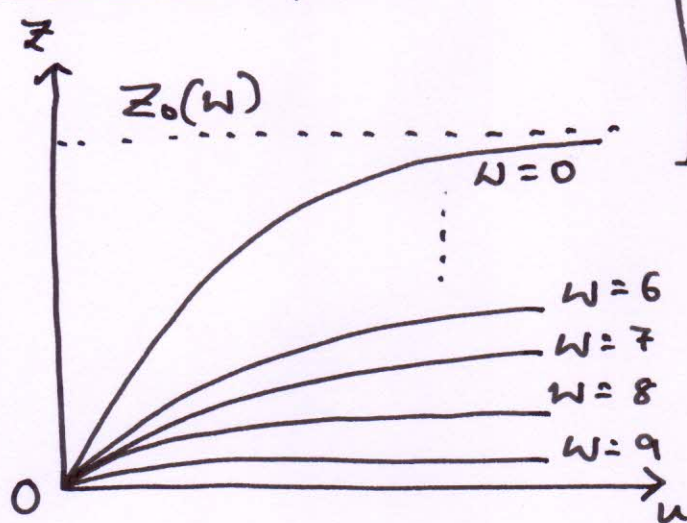 Z
Z₀(W)
W = 0
W = 6
W = 7
W = 8
W = 9
O
u